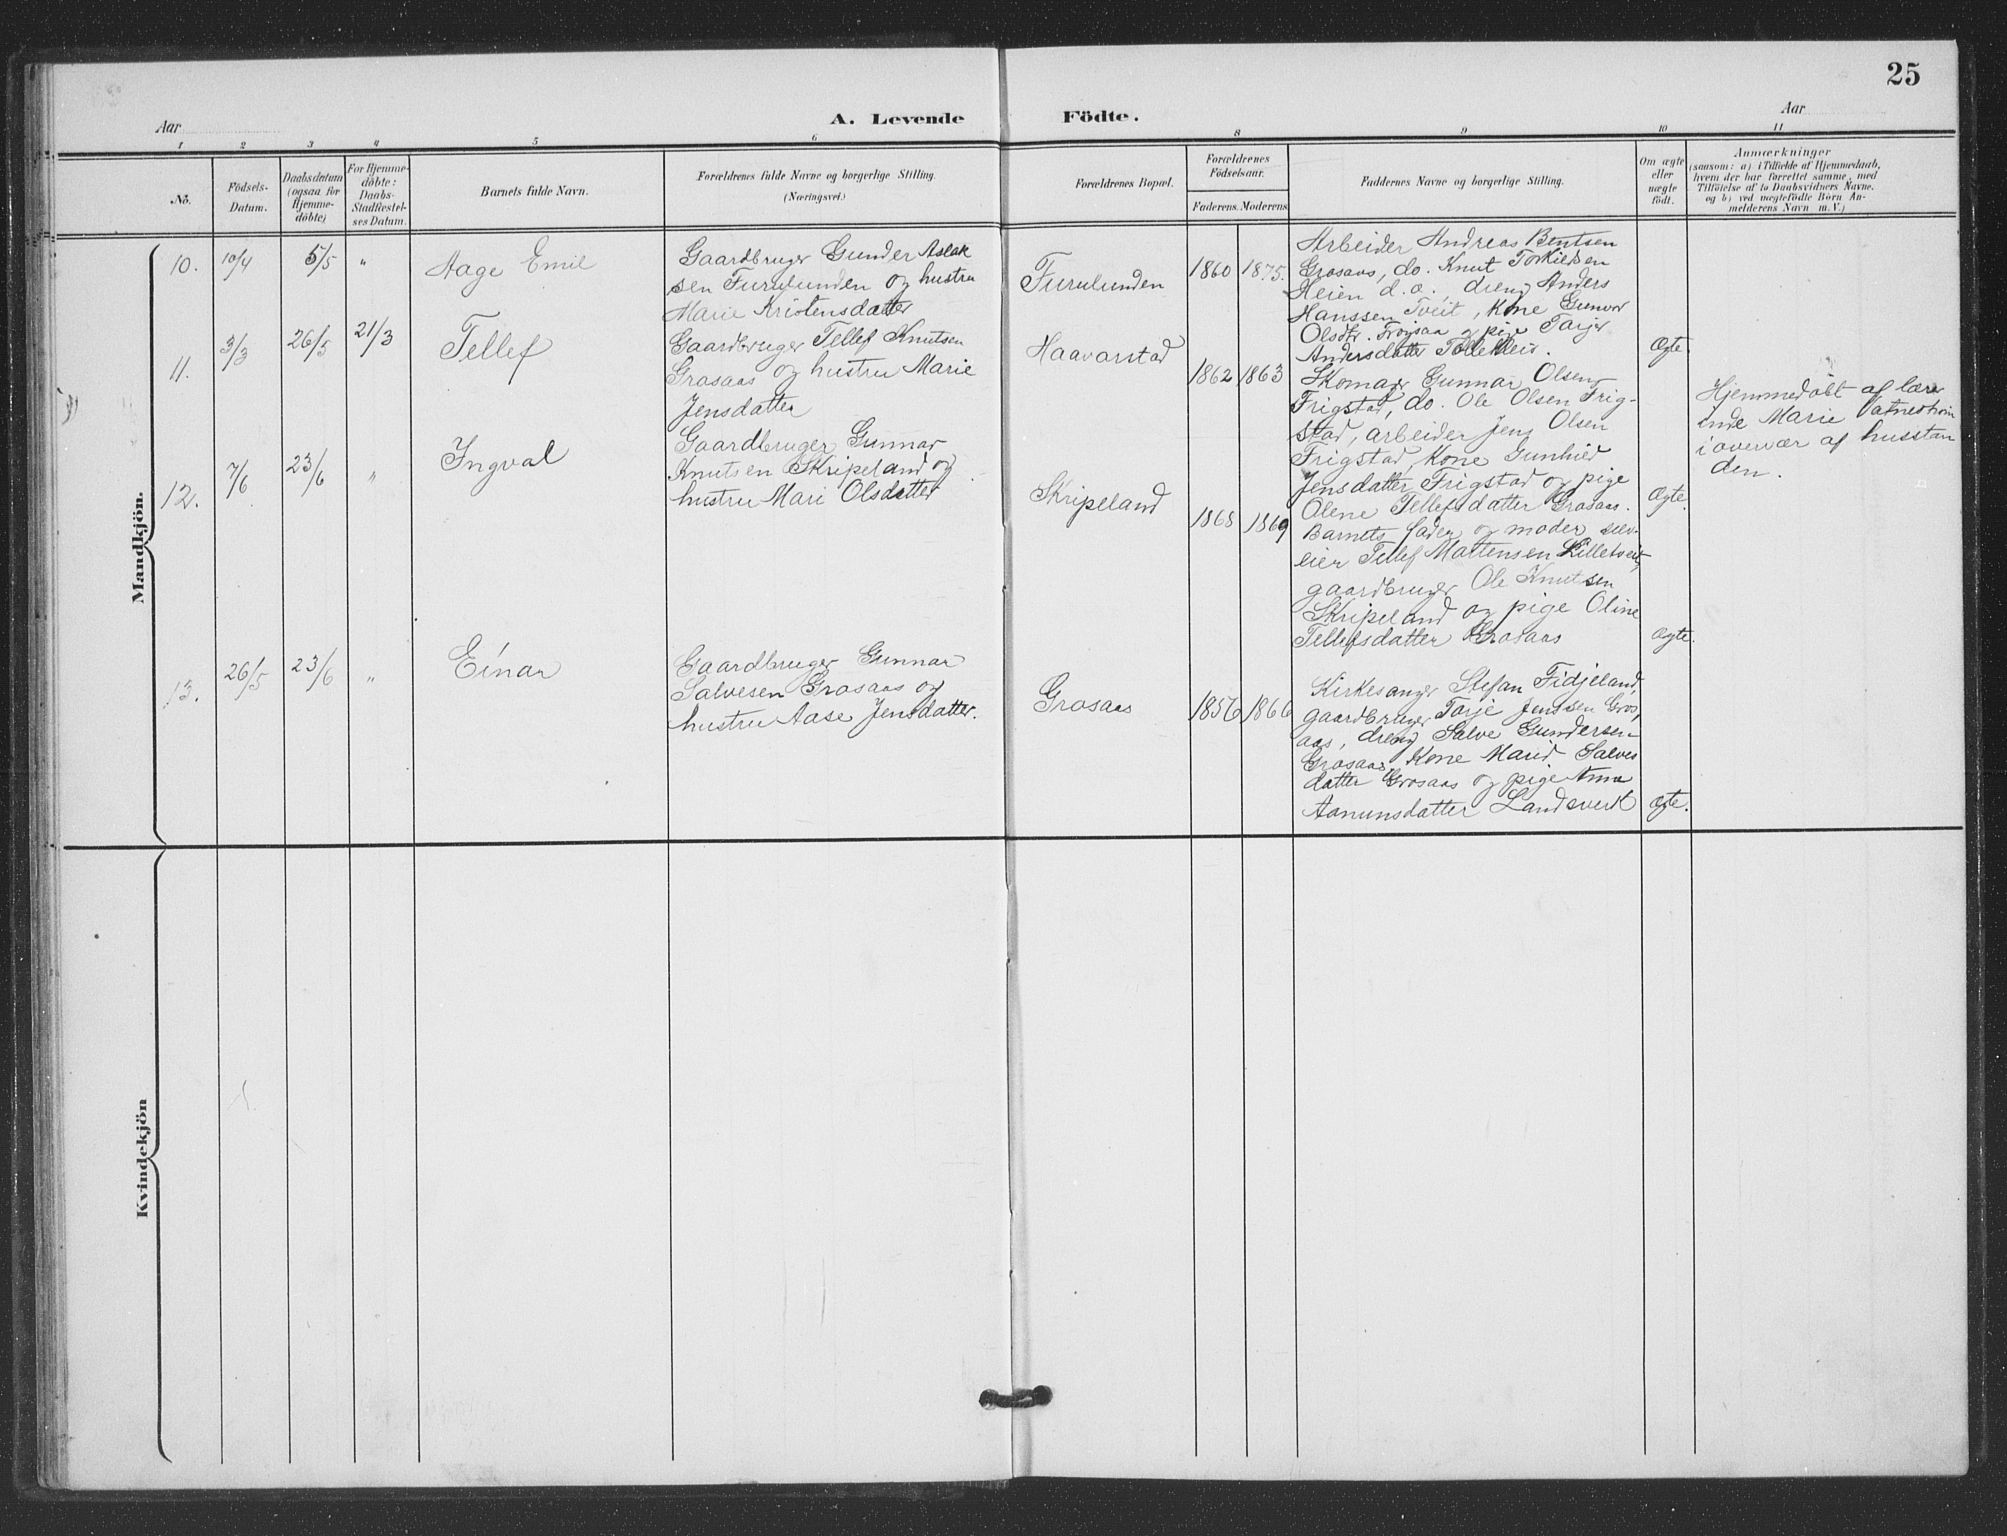 25
Aar
A. Levende Födte.
Aar
1 2 3 4 5 6 8 9 10 11
No.
Födsels-
Datum.
Daabsdatum
(ogsaa for
Hjemme-
döbte)
For Hjemme-
döbte:
Daabs-
Stadfæstel-
ses Datum.
Barnets fulde Navn.
Forældrenes fulde Navne og borgerlige Stilling.
(Næringsvei.)
Forældrenes Bopæl.
Forældrenes
Födselsaar.
Faderens. Moderens
Faddernes Navne og borgerlige Stilling.
Om ægte
eller
uægte
födt.
Anmærkninger
(saasom: a) i Tilfælde af Hjemmedaab,
hvem der har forrettet samme, med
Tilföielse af to Daabsvidners Navne.
og b) ved uægtefödte Börn An-
melderens Navn m. V.)
Mandkjön.
10.
10/4
5/5
"
Aage Emil
Gaardbruger Gunder Aslak
sen Furulunden og hustru
Marie Kristensdatter
Furulunden
1860
1875.
Arbeider Andreas Bentsen
Grosaas, do. Knut Torkildsen
Heien d.o. dreng Anders
Hanssen Tveit, Kone Gunvor
Olsdtr. Frøysaa og pige Torjer
Andersdatter
Ægte.
11.
3/3
26/5
21/3
Tellef
Gaardbruger Tellef Knutsen
Grosaas og hustru Marie
Jensdatter
Haavorstad
1862
1863
Skomager Gunnar Olsen
Frigstad, do. Ole Olsen Frig-
stad, arbeider Jens Olsen
Frigstad, Kone Gunhild
Jensdatter Frigstad og pige
Olene Tellefsdatter Grosaas.
Ægte.
Hjemmedöbt af lærer
inde Marie Vatnestrøm
i overvær af husstan
den.
12.
7/6
23/6
"
Ingval
Gaardbruger Gunnar
Knutsen Skripeland og
hustru Mari Olsdatter
Skripeland
1868
1869
Barnets fader og moder selv-
eier Tellef Mattensen Lilletveit,
gaardbruger Ole Knutsen
Skripeland og pige Oline
Tellefsdatter Grosaas
Ægte.
13.
26/5
23/6
"
Einar
Gaardbruger Gunnar
Salvesen Grosaas og
hustru Aase Jensdatter.
Grosaas
1856
1866
Kirkesanger Stefan Fidjeland,
gaardbruger Torje Jenssen Gros,
aas, dreng Salve Gundersen
Grosaas, Kone Marid Salves
datter Grosaas og pige Anne
Aanunsdatter Landsverk
Ægte.
Kvindekjön